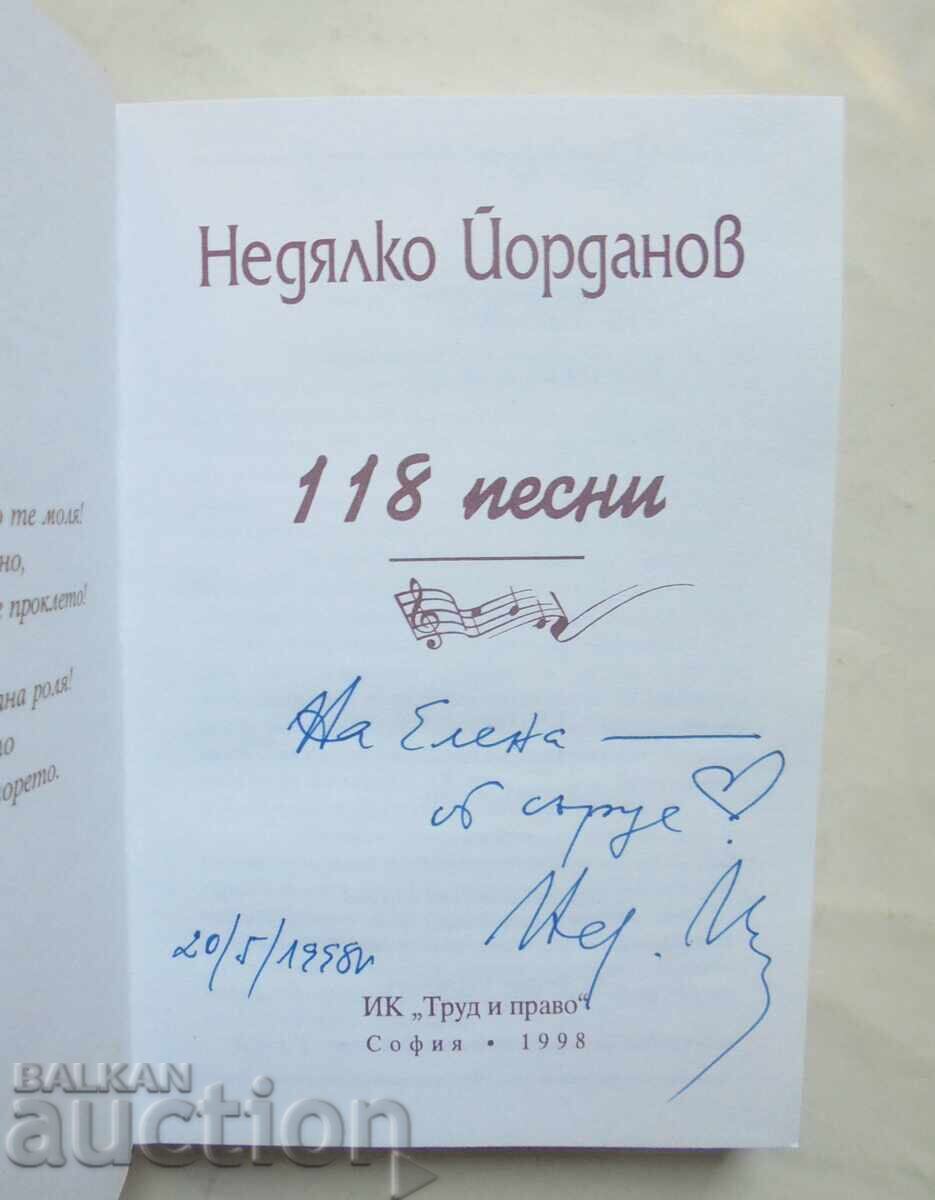 те моля!
но,
проклето!
роля!
Недялко Йорданов
118 песни
На Елена
от сърце
20/5/1998г
Нед. Й
ИК „Труд и право“
София • 1998
BALKAN
auction